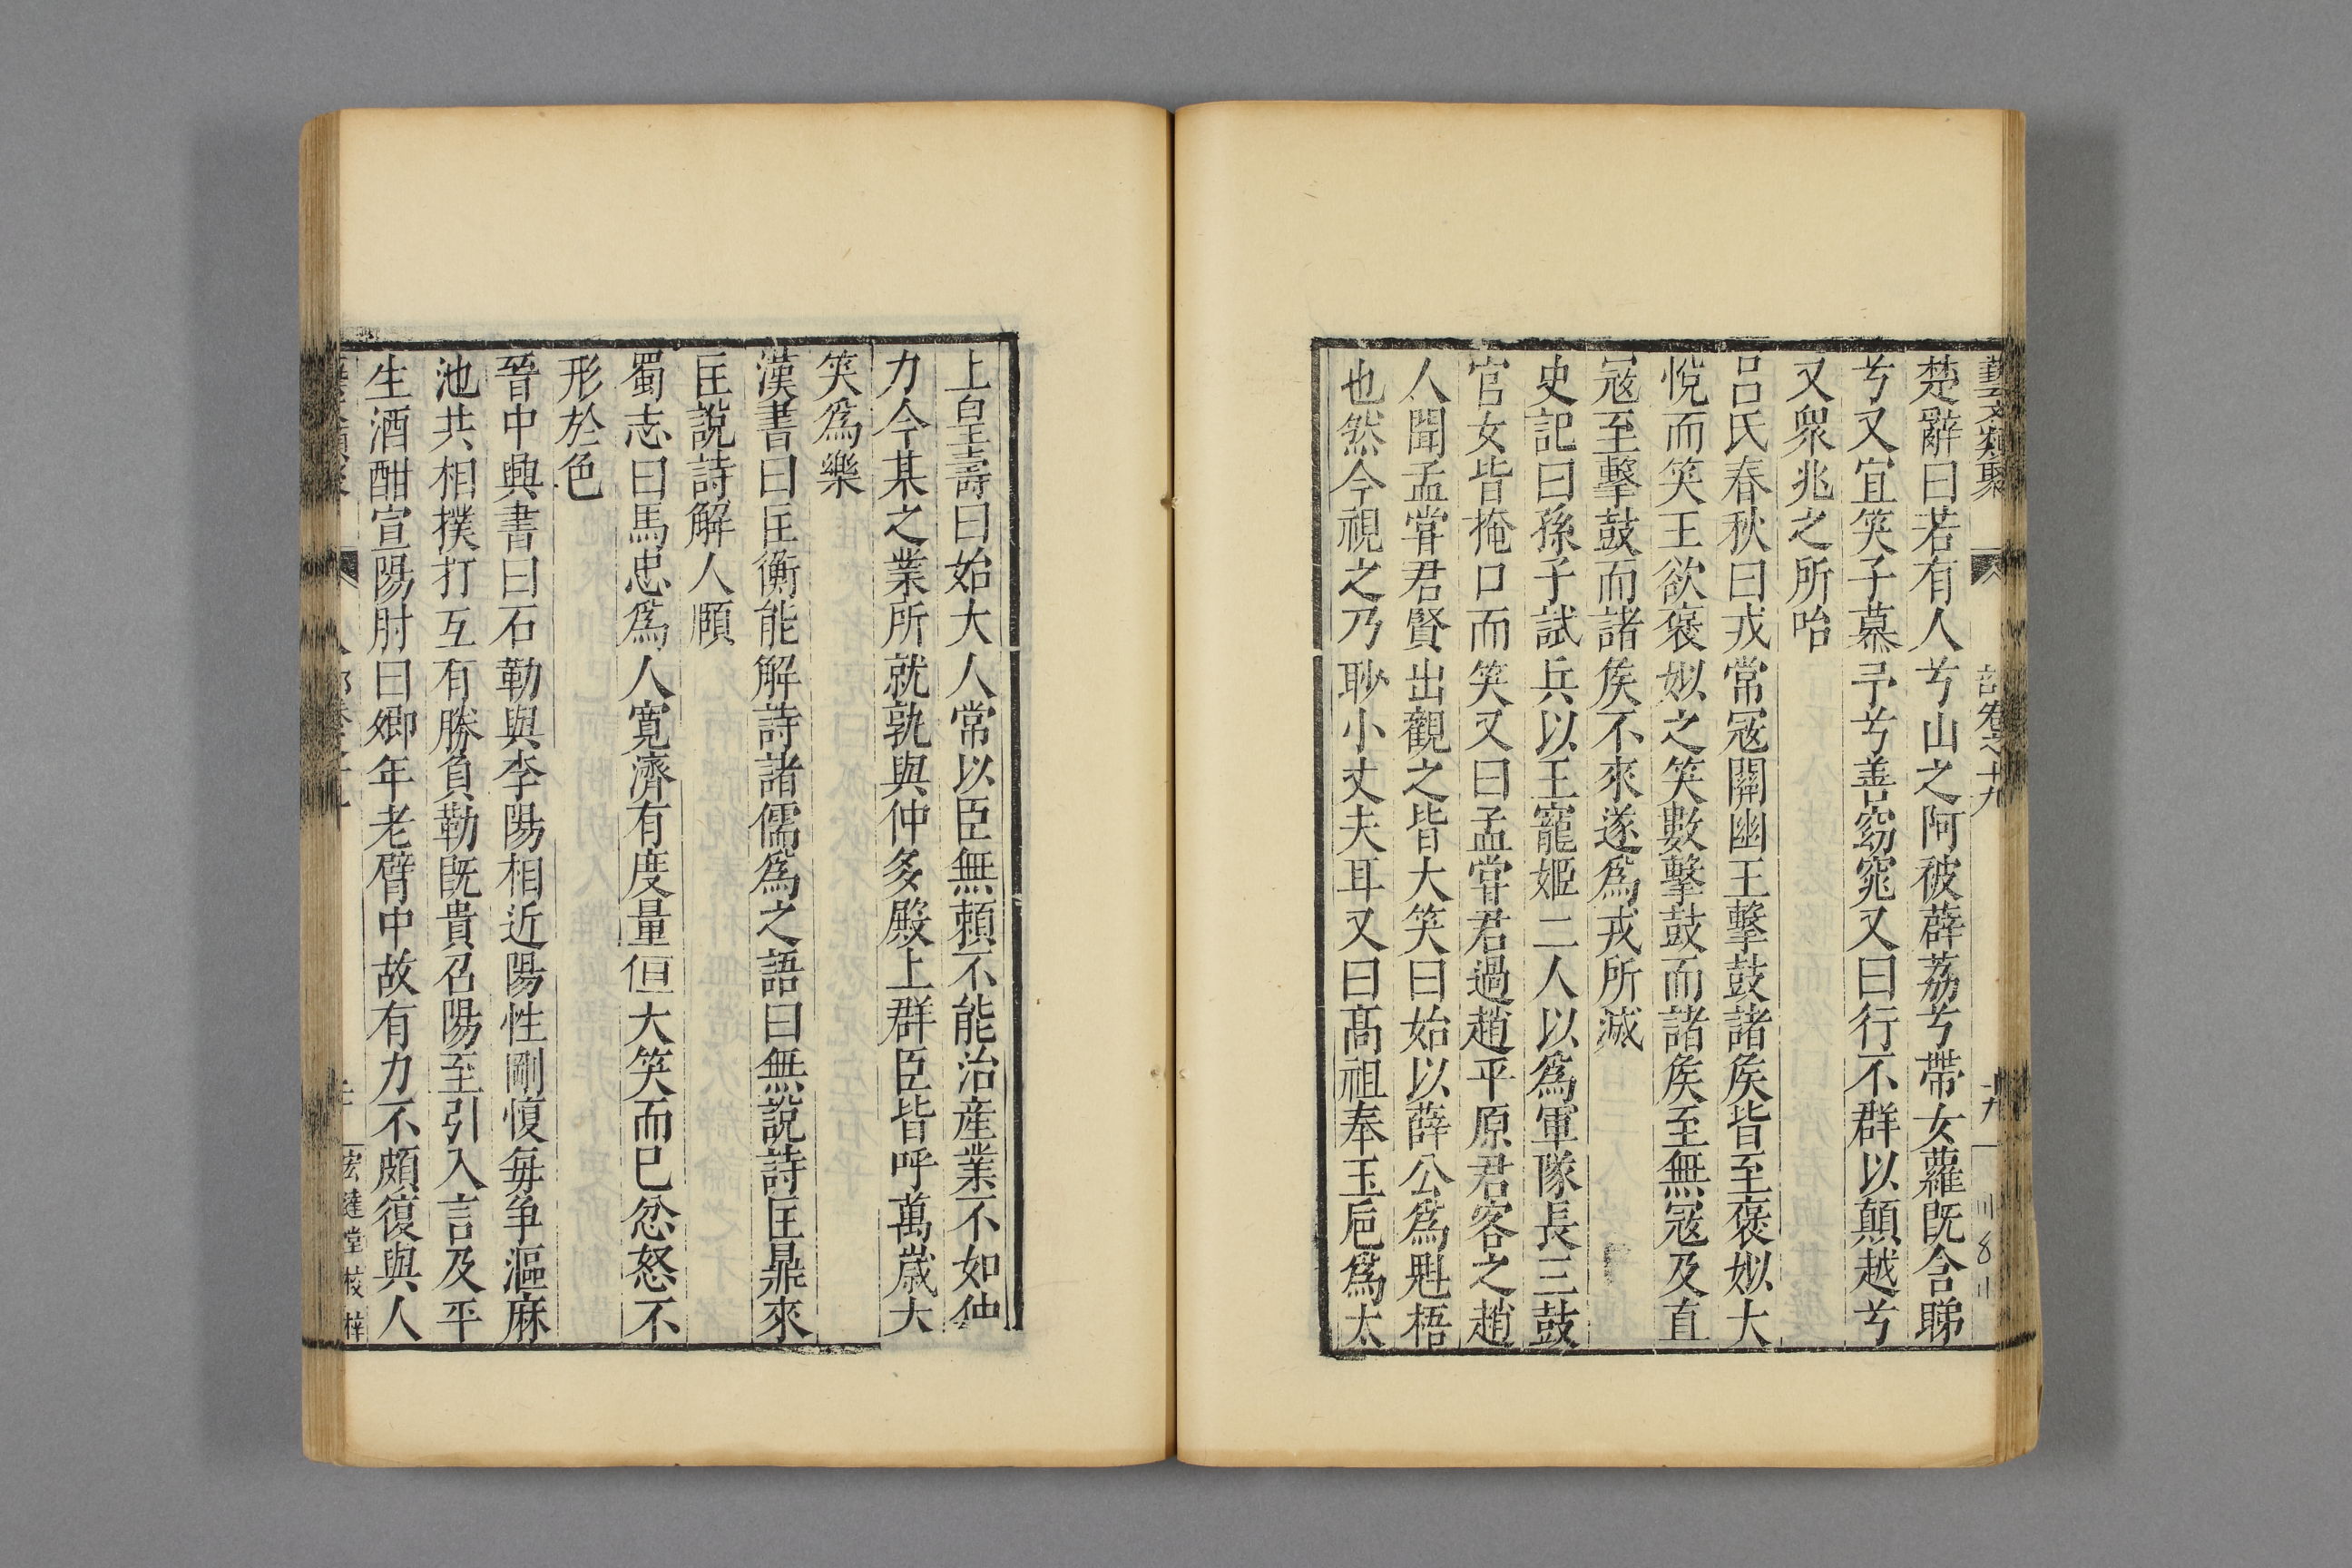 藝文類聚 部卷之十九 十九
楚辭曰若有人兮山之阿被薜荔兮帶女蘿既含睇
兮又宜笑子慕予兮善窈窕又曰行不群以顛越兮
又衆兆之所咍
吕氏春秋曰戎常冦關幽王擊鼓諸矦皆至褒姒大
悅而笑王欲褒姒之笑數擊鼓而諸矦至無冦及直
冦至擊鼓而諸矦不來遂爲戎所滅
史記曰孫子試兵以王寵姬二人以爲軍隊長三鼓
官女皆掩口而笑又曰孟甞君過趙平原君客之趙
人聞孟甞君賢出觀之皆大笑曰始以薛公爲魁梧
也然今視之乃眇小丈夫耳又曰髙祖奉玉巵爲太
上皇壽曰始大人常以臣無頼不能治産業不如仲
力今某之業所就孰與仲多殿上群臣皆呼萬歲大
笑爲樂
漢書曰匡衡能解詩諸儒爲之語曰無說詩匡鼎來
匡說詩解人頤
蜀志曰馬忠爲人寛濟有度量但大笑而已忿怒不
形於色
晉中興書曰石勒與李陽相近陽性剛愎毎争漚麻
池共相撲打互有勝負勒既貴召陽至引入言及平
生酒酣宣陽肘曰卿年老臂中故有力不頗復與人
宏達堂校梓